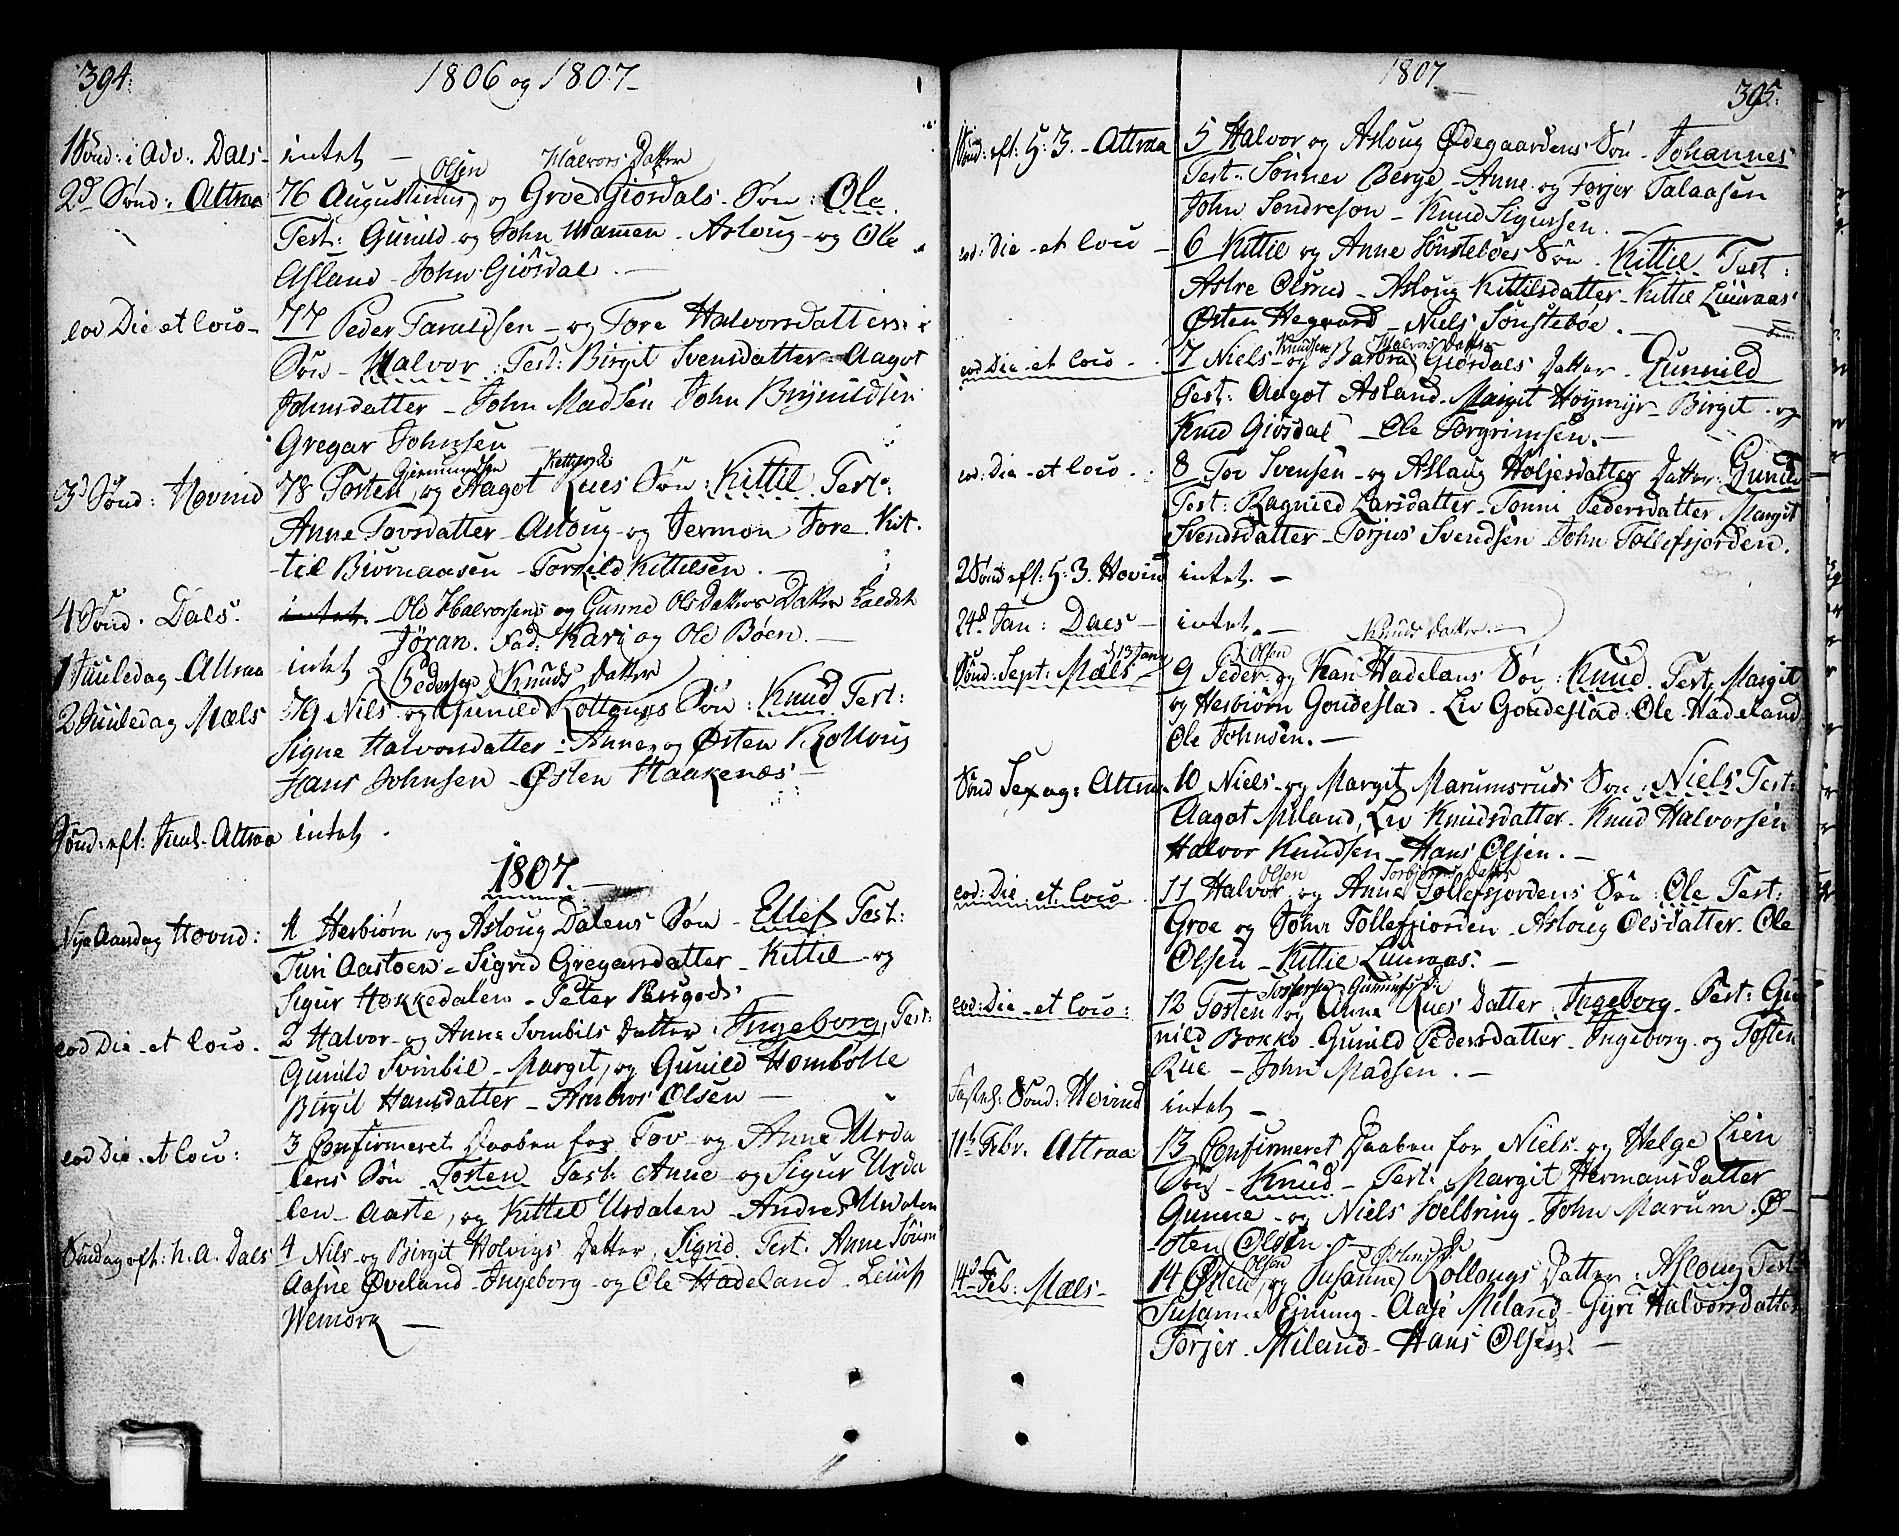 394:
1806 og 1807
1 Sønd: i Adv: Dals - intet -
Olsen Halvors Datter
2d Sønd: Attraa 76 Augustinus og Groe Giørdals Søn: Ole
Test: Gunild og John Mamen - Asloug og Ole
Asland - John Giøsdal. -
eod Die et loco - 77 Peder Taraldsen - og Tore Halvorsdatters
Søn - Halvor. Test: Birgit Svensdatter - Aagot
Johnsdatter - John Madsen John Brynildsen
Gregar Johnsen -
Giermundsen Kettilsd
3d Sønd: Hovind 78 Tosten og Aagot Rues Søn: Kittil Test:
Anne Tovsdatter - Asloug og Jermon Tore Kit-
til Biørnaasen - Torkild Kittelsen. -
4 Sønd. Dals. intet. - Ole Halvorsens og Gunne Ols Datters Datter kaldet
Jøran. Fad: Kari og Ole Bøen. -
1 Juuledag - Attraa intet
Pedersen Knuds Datter
2 Juuledag Mæls 79 Nils og Gunild Kollongs Søn: Knud Test:
Signe Halvorsdatter - Anne og Østen Kollong
Hans Johnsen - Østen Haakenæs -
Sønd: eft: Juul - Attraa intet.
1807. -
Nye Aarsdag Hovnd: 1 Herbiørn og Asloug Dalens Søn - Ellef Test:
Turi Aastoen - Sigrid Gregarsdatter - Kittil og
Sigur Hokkedalen - Peter
eod Die et loco. 2 Halvor og Anne Svinbils Datter: Ingeborg, Test:
Gunild Svinbil - Margit, og Gunild Hombølle
Birgit Hansdatter - Anders Olsen -
eod Die et loco: 3 Confirmeret Daaben for Tov og Anne Urda
lens Søn Tosten Test: Anne og Sigur Urda
len - Aaste, og Kittil Urdalen - Andres Urdalen
Søndag eft: N. A. Dals 4 Nils og Birgit Holvigs Datter, Sigrid. Test: Anne
Aasne Øveland - Ingeborg og Ole Hadeland -
Wemork -
1807.
395:
1 Sønd: eft: H: 3. - Attraa 5 Halvor og Asloug Ødegaardens Søn - Johannes
Test: Sønnev Berge - Anne og Torjer Talaasen
John Sondreson - Knud Sigursen.
eod: Die et loco - 6 Kittil og Anne Sønstebøes Søn - Kittil Test:
Astre Olsrud - Asloug Kittilsdatter - Kittil Luuraas
Østen Hegaard - Niels Sønstebøe. -
Knudsen Halvors Datter
eod Die et loco. 7 Niels og Barbra Giøsdals Datter - Gunnild
Test: Aagot Asland - Margit Høymyr - Birgit og
Knud Giøsdal - Ole Torgrimsen. -
eod: Die et loco. 8 Tov Svensen - og Aslaug Høljesdatter Datter: Gunild
Test: Ragnild Larsdatter - Tonni Pedersdatter Margit
Svendsdatter - Torjus Svendsen - John Tollefsjorden.
2 Sønd eft: H: 3. Hovin intet. -
24d Jan: Dals - intet. -
Knuds Datter. -
Olsen
Sønd: Sept: Mæls 9 Peder og Kari Hadelans Søn: Knud. Test: Margit
og Herbiørn Goudestad - Liv Goudestad: Ole Hadeland
Ole Johnsen. -
Sønd Sexag: Attraa 10 Niels og Margit Marumsruds Søn: Niels Test:
Aagot Miland, Liv Knudsdatter - Knud Halvorsen
Halvor Knudsen - Hans Olsen. -
Olsen Torbiørns Datter
eod: Die et loco. 11 Halvor og Anne Tollefsjordens Søn: Ole Test:
Groe og John Tollefsjorden - Asloug Olsdatter. Ole
Olsen - Kittil Luuraas. -
Tostensen Gunulfs D:
eod: Die et loco: 12 Tosten og Anne Rues Datter, Ingeborg. Test: Gu
nild Bokko - Gunild Pedersdatter - Ingeborg og Tosten
Rue - John Madsen. -
Fastel: Sønd: Hovind intet -
11te Febr. Attraa 13 Confirmeret Daaben for Niels og Helge Lien
Søn - Knud - Test: Margit Hermansdatter
Gunne - og Niels Sølbring - John Marum. Ø-
sten Olsen. -
Olsen Østens D:
14d Feb: Mæls - 14 Østen og Susanne Kollongs Datter: Asloug Test:
Susanne - Aase Miland - Gyri Halvorsdatter
Torjer Miland - Hans Olsen. -